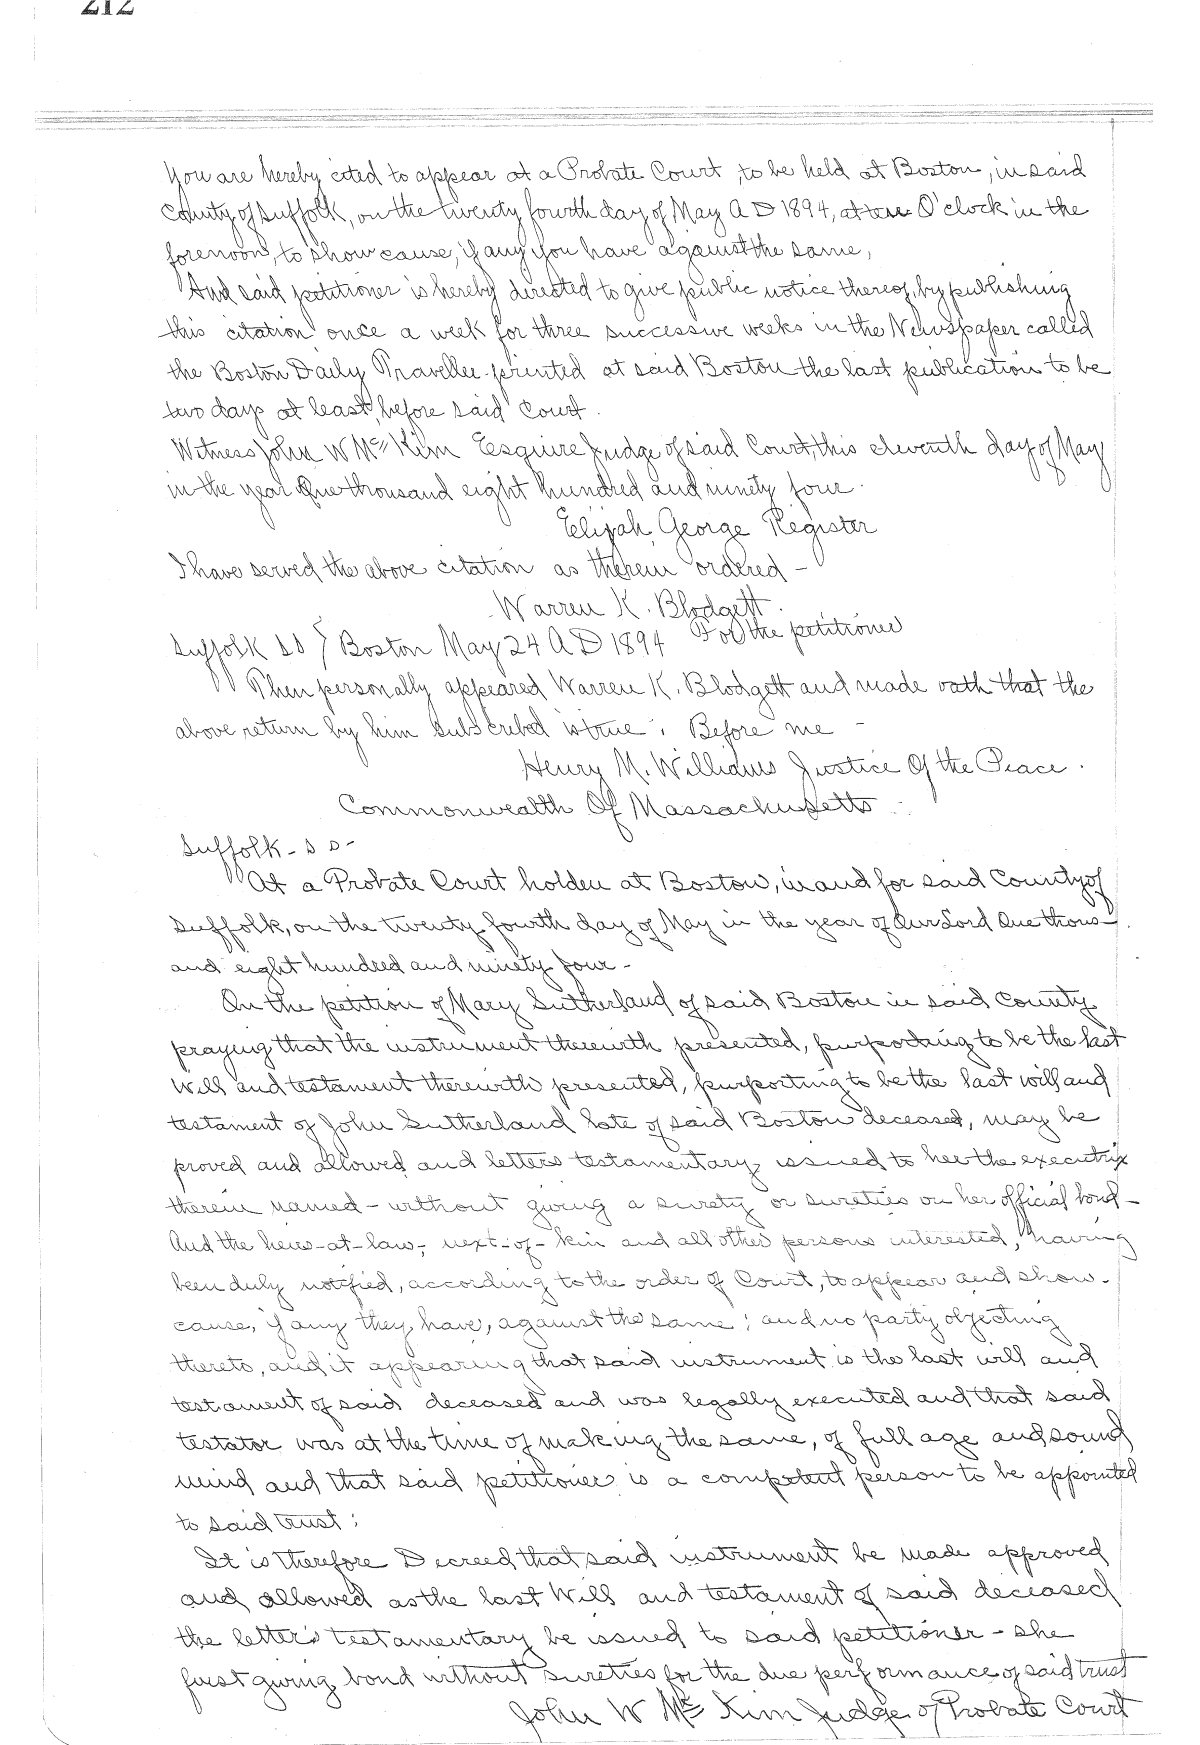 212
You are hereby cited to appear at a Probate Court, to be held at Boston, in said
County of Suffolk, on the twenty fourth day of May A D 1894, at ten O'clock in the
forenoon, to show cause, if any you have against the same,
And said petitioner is hereby directed to give public notice thereof, by publishing
this citation once a week for three successive weeks in the Newspaper called
the Boston Daily Traveller printed at said Boston the last publication to be
two days at least, before said Court.
Witness John W Mc Kim Esquire Judge of said Court, this eleventh day of May
in the year One thousand eight hundred and ninety four.
Elijah George Register
I have served the above citation as therein ordered -
Warren K. Blodgett.
For the petitioner
Suffolk SS } Boston May 24 A D 1894
Then personally appeared Warren K. Blodgett and made oath that the
above return by him subscribed is true. Before me -
Henry M. Williams Justice Of the Peace.
Commonwealth Of Massachusetts
Suffolk - S S -
At a Probate Court holden at Boston, in and for said County of
Suffolk, on the twenty fourth day of May in the year of Our Lord One thous-
and eight hundred and ninety four -
On the petition of Mary Sutherland of said Boston in said County
praying that the instrument therewith presented, purporting to be the last
Will and testament therewith presented, purporting to be the last will and
testament of John Sutherland late of said Boston deceased, may be
proved and allowed and letters testamentary issued to her the executrix
therein named - without giving a surety or sureties on her official bond -
And the heirs-at-law, next-of-kin and all other persons interested, having
been duly notified, according to the order of Court, to appear and show
cause, if any they have, against the same; and no party objecting
thereto, and it appearing that said instrument is the last will and
testament of said deceased and was legally executed and that said
testator was at the time of making the same, of full age and sound
mind and that said petitioner is a competent person to be appointed
to said trust:
It is therefore Decreed that said instrument be made approved
and allowed as the last Will and testament of said deceased
the letters testamentary be issued to said petitioner - she
first giving bond without sureties for the due performance of said trust
John W Mc Kim Judge of Probate Court